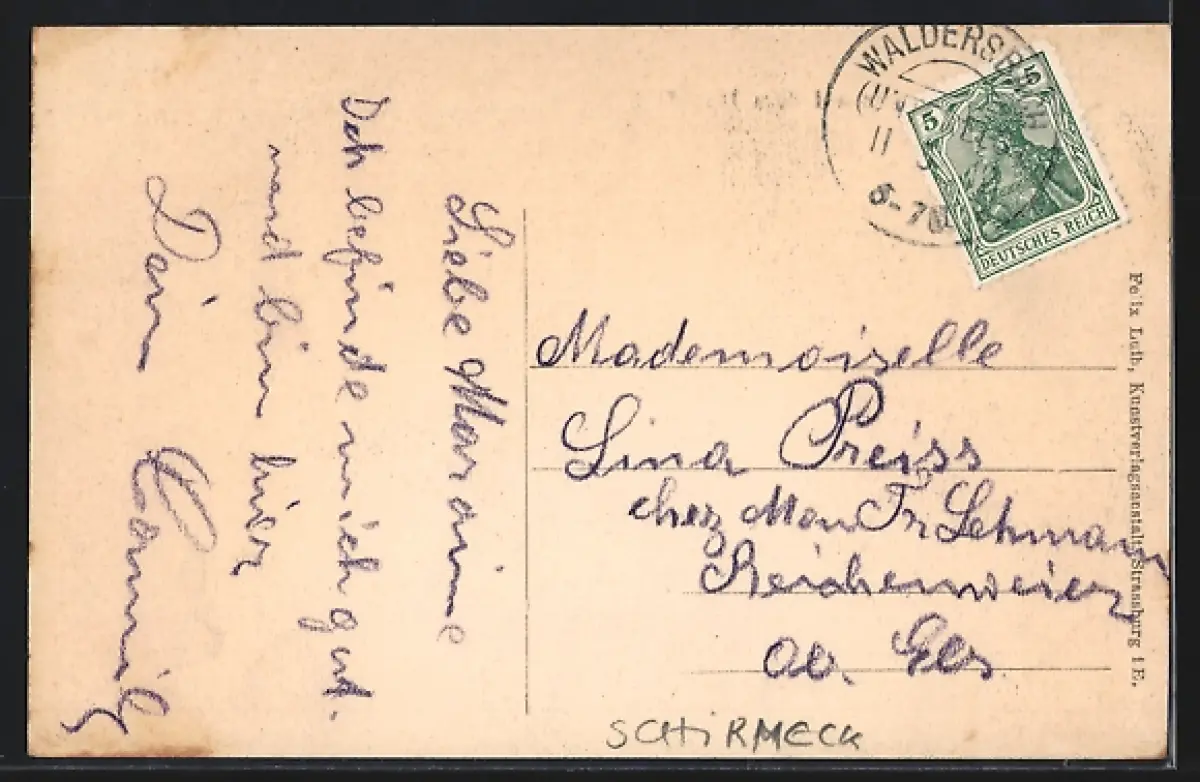 Liebe Marraine
Ich befinde mich gut.
und bin hier
Dein Camill
WALDERSBACH
11
5-7N
5
5
DEUTSCHES REICH
Mademoiselle
Lina Preiss
chez Mon Fr Lehmann
Reichenweier
Ob. Els
Felix Luib, Kunstverlagsanstalt, Strassburg i E.
SCHIRMECK